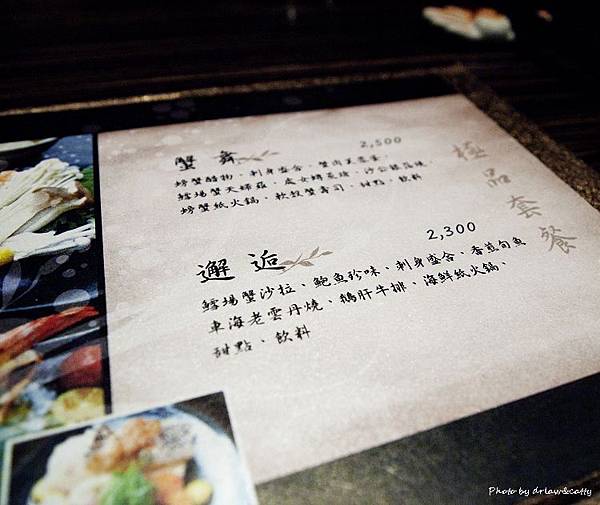 極品套餐
蟹舞
2,500
螃蟹醋物、刺身盛合、蟹肉茶壺蒸、
鱈場蟹天婦羅、處女蟳花燒、沙公鍋物燒、
螃蟹紙火鍋、軟殼蟹壽司、甜點、飲料
邂逅
2,300
鱈場蟹沙拉、鮑魚珍味、刺身盛合、香煎旬魚
車海老雲丹燒、鵝肝牛排、海鮮紙火鍋、
甜點、飲料
Photo by drlaw&catty